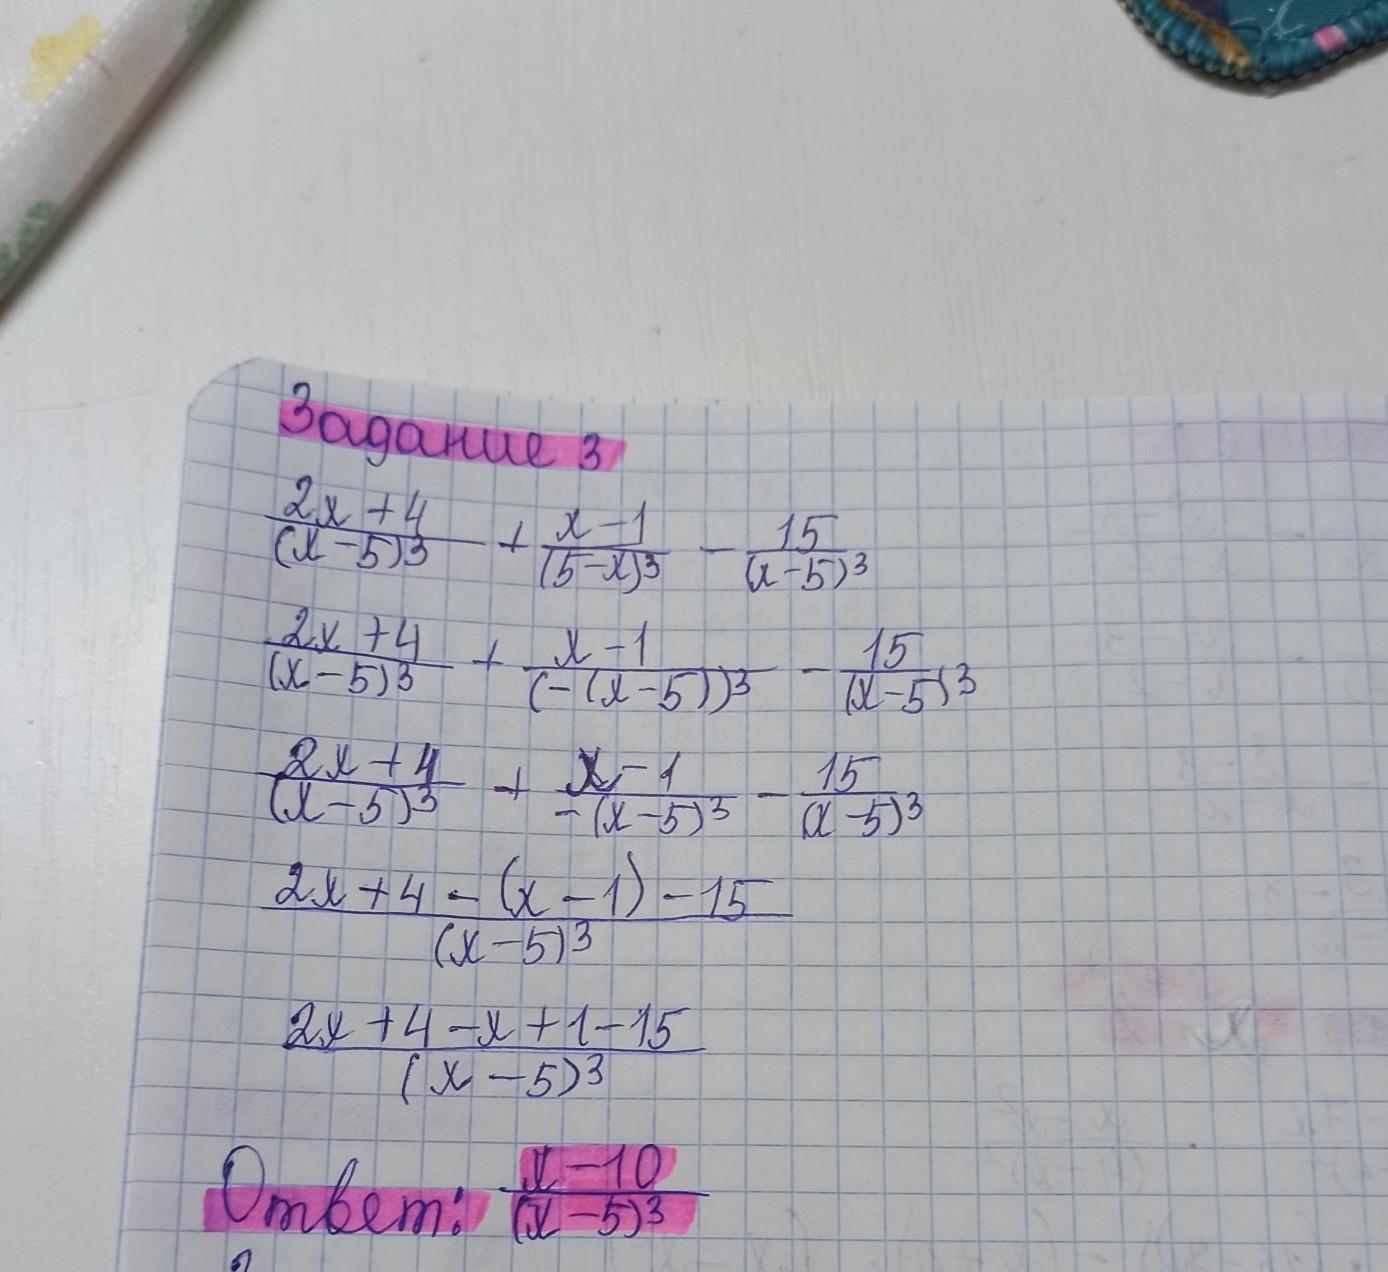 Задание 3
(2x+4)/(x-5)³ + (x-1)/(5-x)³ - 15/(x-5)³
(2x+4)/(x-5)³ + (x-1)/(-(x-5))³ - 15/(x-5)³
(2x+4)/(x-5)³ + (x-1)/-(x-5)³ - 15/(x-5)³
(2x+4-(x-1)-15)/(x-5)³
(2x+4-x+1-15)/(x-5)³
Ответ: (x-10)/(x-5)³